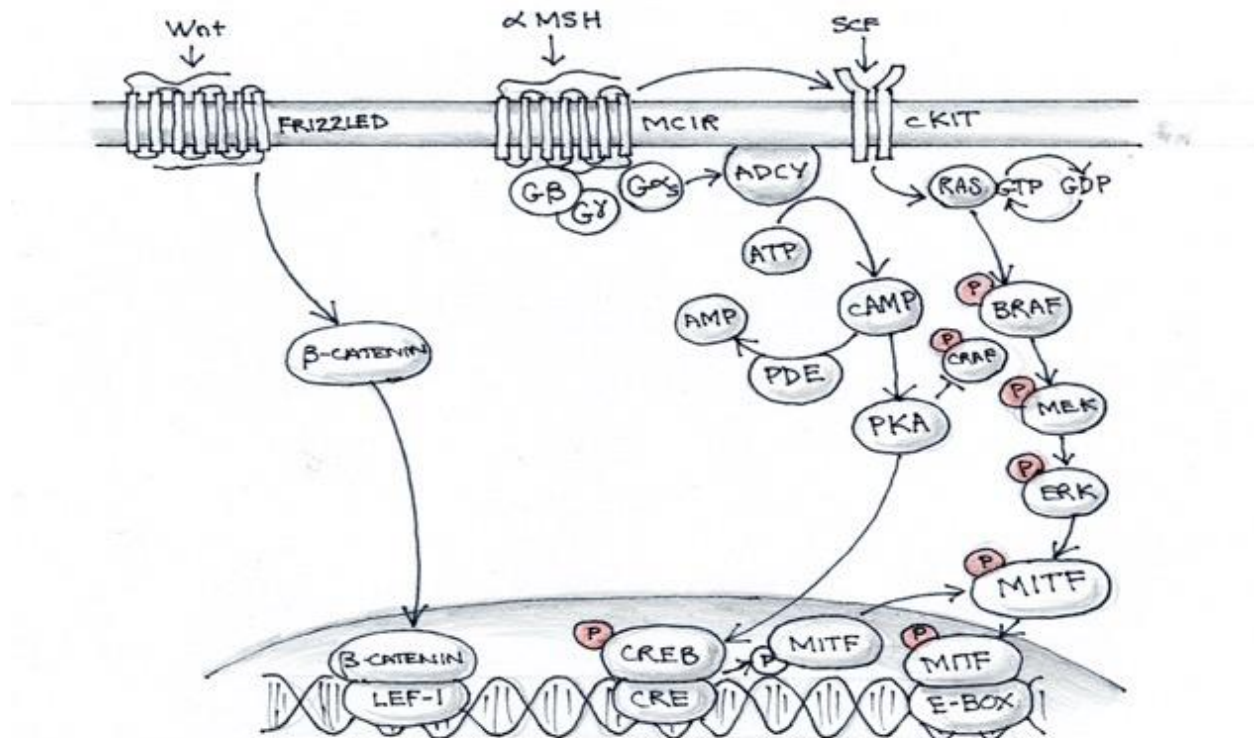 Wnt
α MSH
SCF
FRIZZLED
MC1R
cKIT
Gβ
Gγ
Gαs
ADCY
RAS
GTP
GDP
ATP
cAMP
AMP
PDE
P
BRAF
P
CRAF
β-CATENIN
P
MEK
PKA
P
ERK
P
MITF
β-CATENIN
LEF-1
P
CREB
CRE
P
MITF
P
MITF
E-BOX